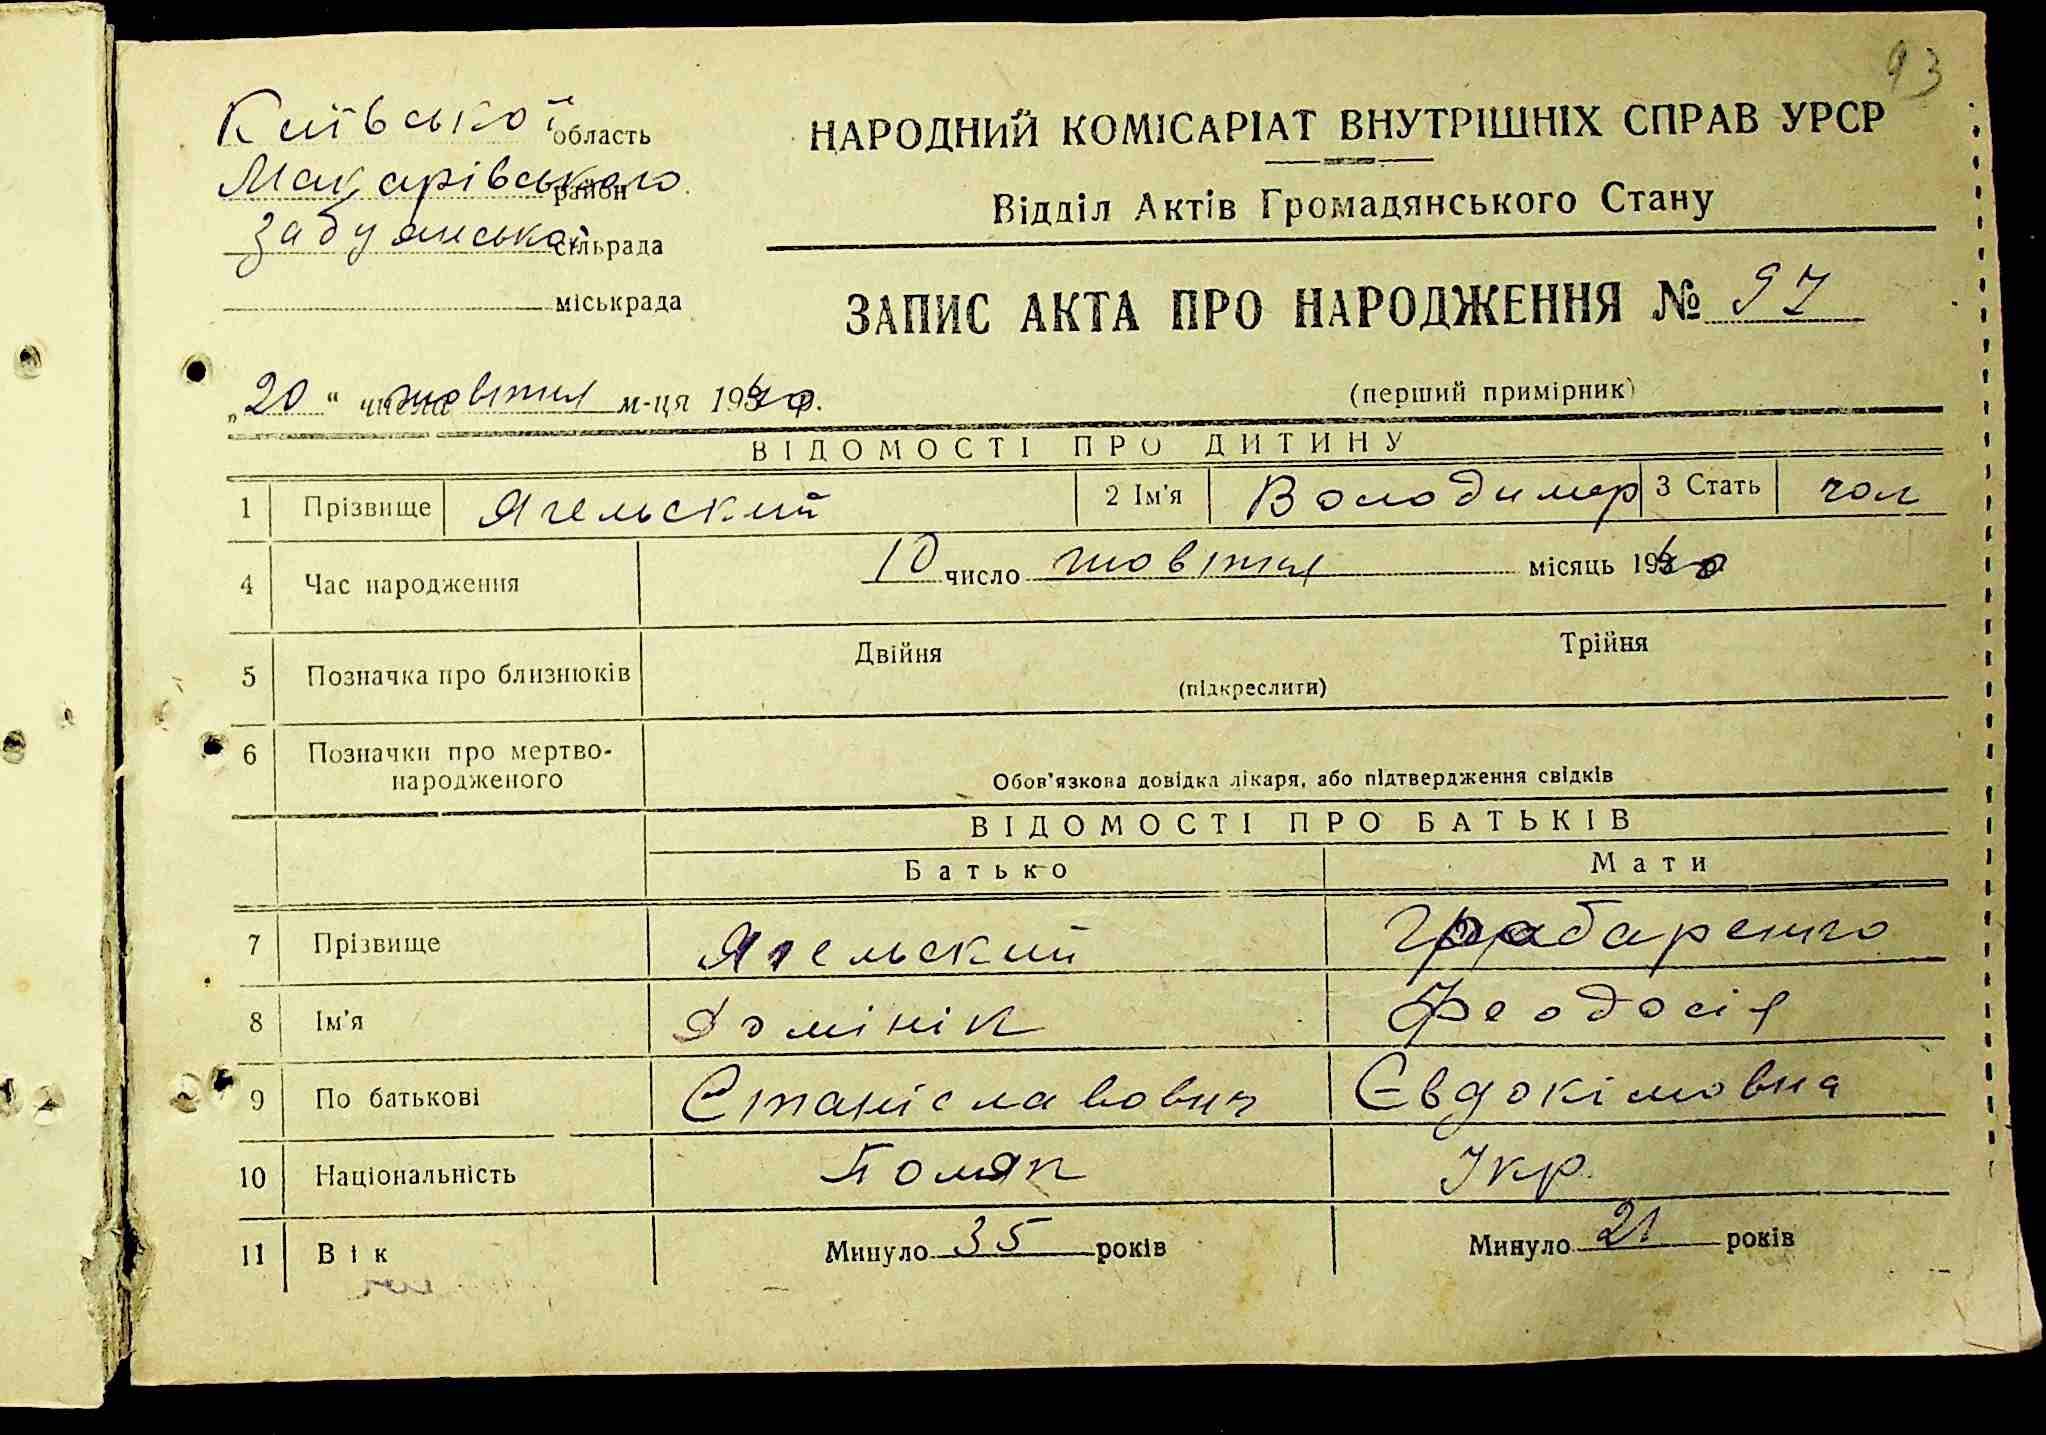 93
Київської область
Макарівського район
Забуянської сільрада
міськрада
НАРОДНИЙ КОМІСАРІАТ ВНУТРІШНІХ СПРАВ УРСР
Відділ Актів Громадянського Стану
ЗАПИС АКТА ПРО НАРОДЖЕННЯ № 97
„20“ числа жовтня м-ця 1940р.
(перший примірник)
ВІДОМОСТІ ПРО ДИТИНУ
1 Прізвище Ягельский 2 Ім'я Володимер 3 Стать чол
4 Час народження 10 число жовтня місяць 1940
5 Позначка про близнюків Двійня Трійня
(підкреслити)
6 Позначки про мертво-
народженого Обов'язкова довідка лікаря, або підтвердження свідків
ВІДОМОСТІ ПРО БАТЬКІВ
Батько Мати
7 Прізвище Ягельский Грабаренко
8 Ім'я Домінік Феодосія
9 По батькові Станіславович Євдокімовна
10 Національність Поляк Укр.
11 Вік Минуло 35 років Минуло 21 років